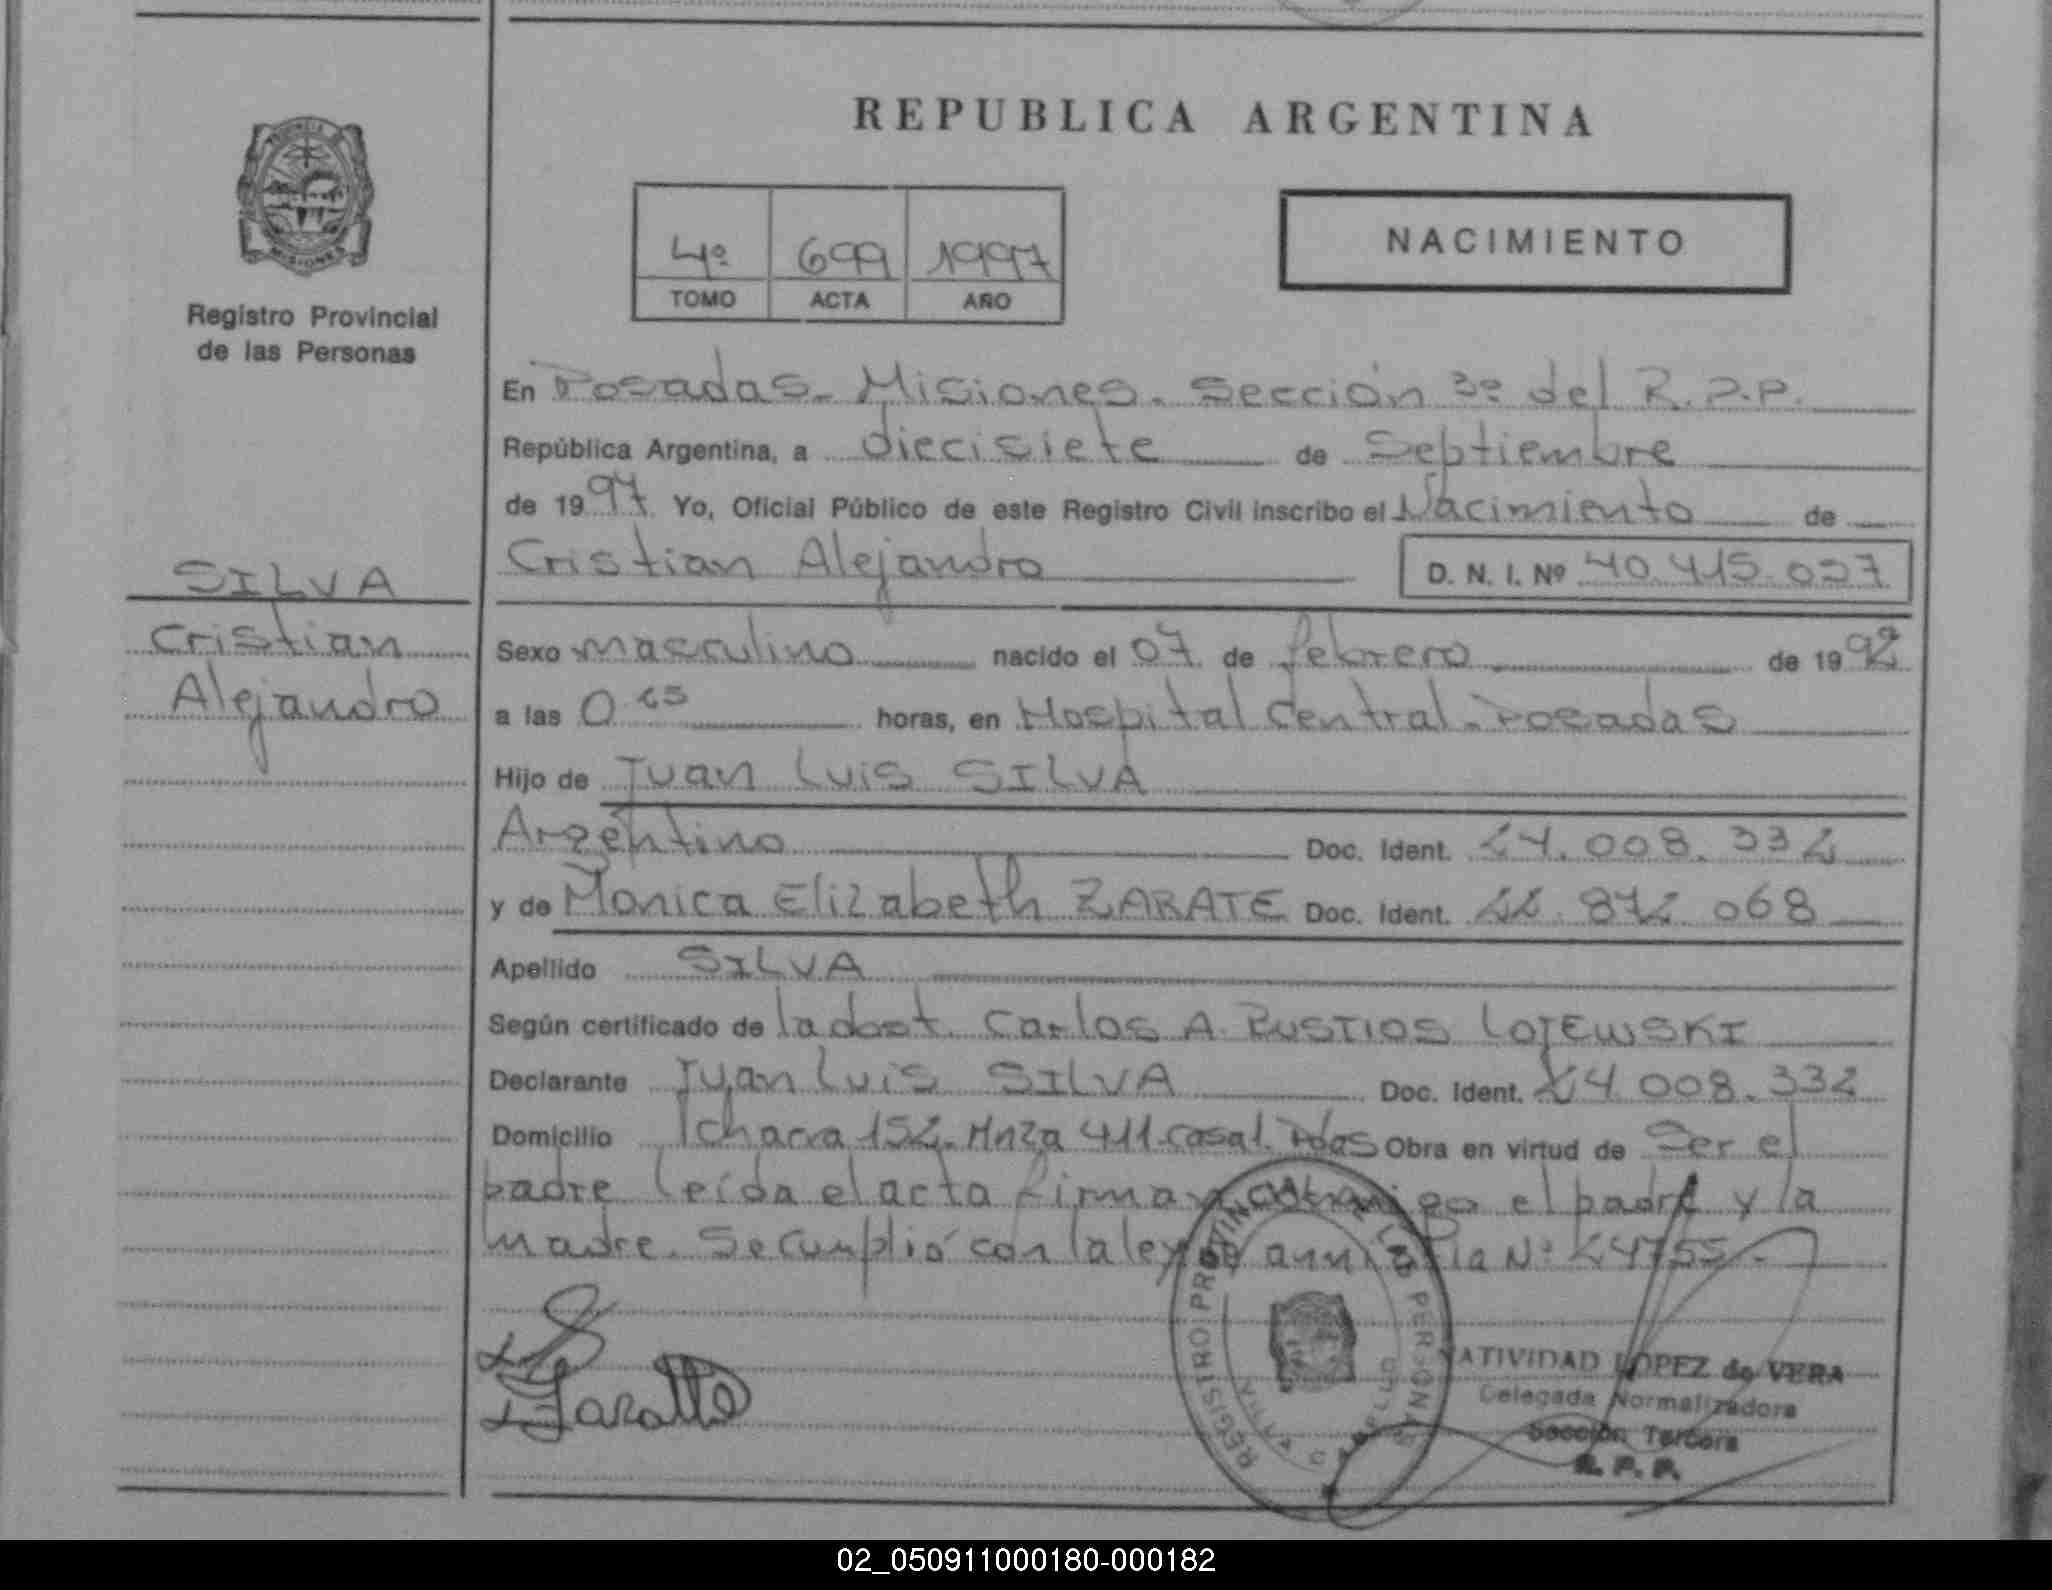 REPUBLICA ARGENTINA
PROVINCIA
MISIONES
Registro Provincial
de las Personas
4º 699 1997
TOMO ACTA AÑO
NACIMIENTO
En Posadas- Misiones. Sección 3º del R.P.P.
República Argentina, a diecisiete de Septiembre
de 1997 Yo, Oficial Público de este Registro Civil inscribo el Nacimiento de
Cristian Alejandro D. N. I. Nº 40.415.027
SILVA
Cristian
Alejandro
Sexo masculino nacido el 07 de febrero de 1992
a las 0 horas, en Hospital Central - Posadas
Hijo de Juan Luis SILVA
Argentino Doc. Ident. 24.008.332
y de Monica Elizabeth ZARATE Doc. Ident. 22.872 068
Apellido SILVA
Según certificado de la doct. Carlos A. LOJEWSKI
Declarante Juan Luis SILVA Doc. Ident. 24.008.332
Domicilio chacra 152. Mnza 411. casa1. Pdas Obra en virtud de Ser el
padre Leída el acta firman conmigo el padre y la
madre. Se cumplió con la ley de amnistia Nº 24755.-
REGISTRO PROVINCIAL DE LAS PERSONAS
NATIVIDAD LOPEZ de VERA
Delegada Normalizadora
Sección Tercera
R. P. P.
02_050911000180-000182